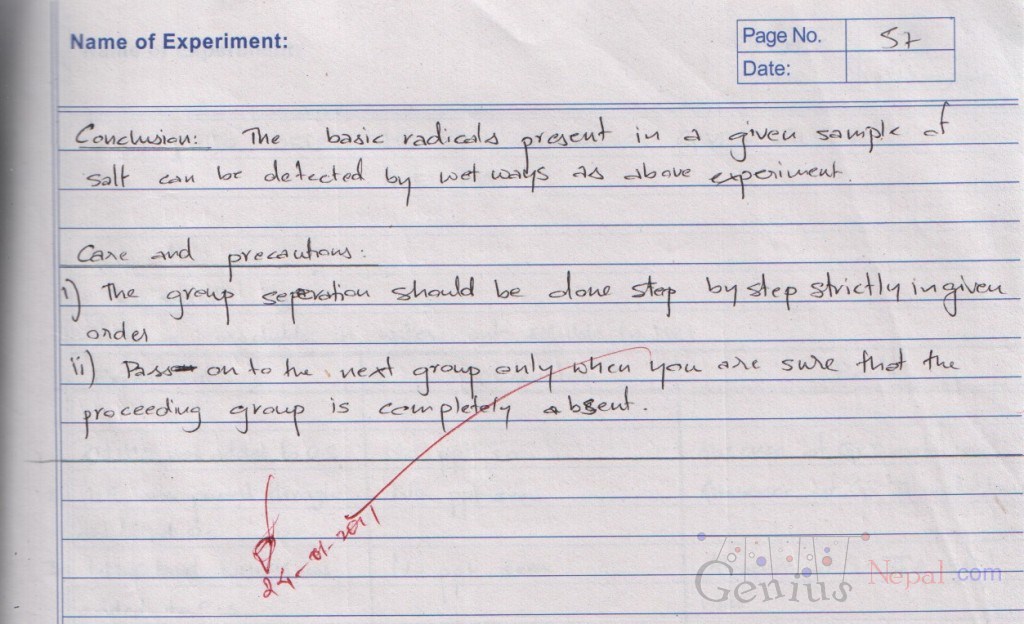 Name of Experiment:
Page No. 57
Date:
Conclusion: The basic radicals present in a given sample of
salt can be detected by wet ways as above experiment.
Care and precautions:
i) The group seperation should be done step by step strictly in given
order
ii) Pass on to the next group only when you are sure that the
proceeding group is completely absent.
24-01-2011
Genius Nepal.com